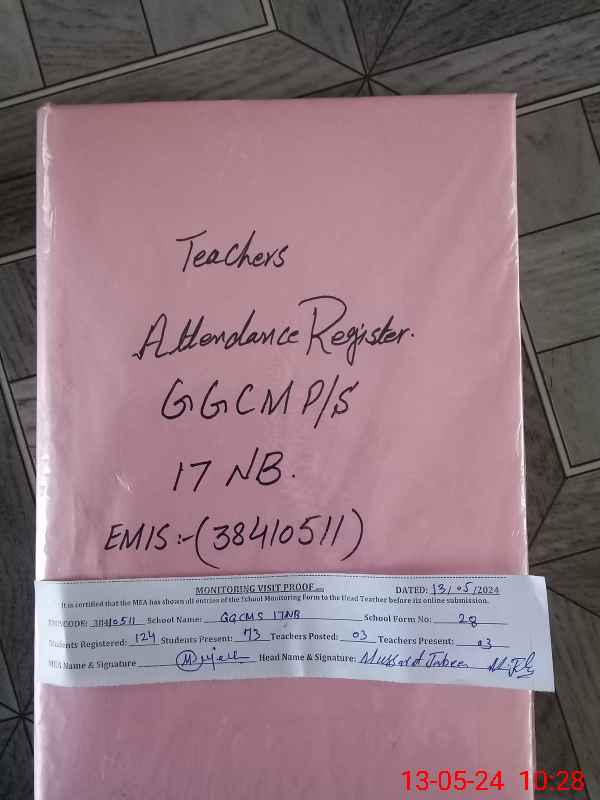 Teachers
Attendance Register.
GGCM P/S
17 NB.
EMIS:-(38410511)
MONITORING VISIT PROOF DATED: 13/05/2024
It is certified that the MEA has shown all entries of the School Monitoring Form to the Head Teacher before its online submission.
EMISCODE: 38410511 School Name: GGCMS 17NB School Form No: 28
Students Registered: 124 Students Present: 73 Teachers Posted: 03 Teachers Present: 03
MEA Name & Signature Head Name & Signature: Mussarat Jabeen
13-05-24 10:28